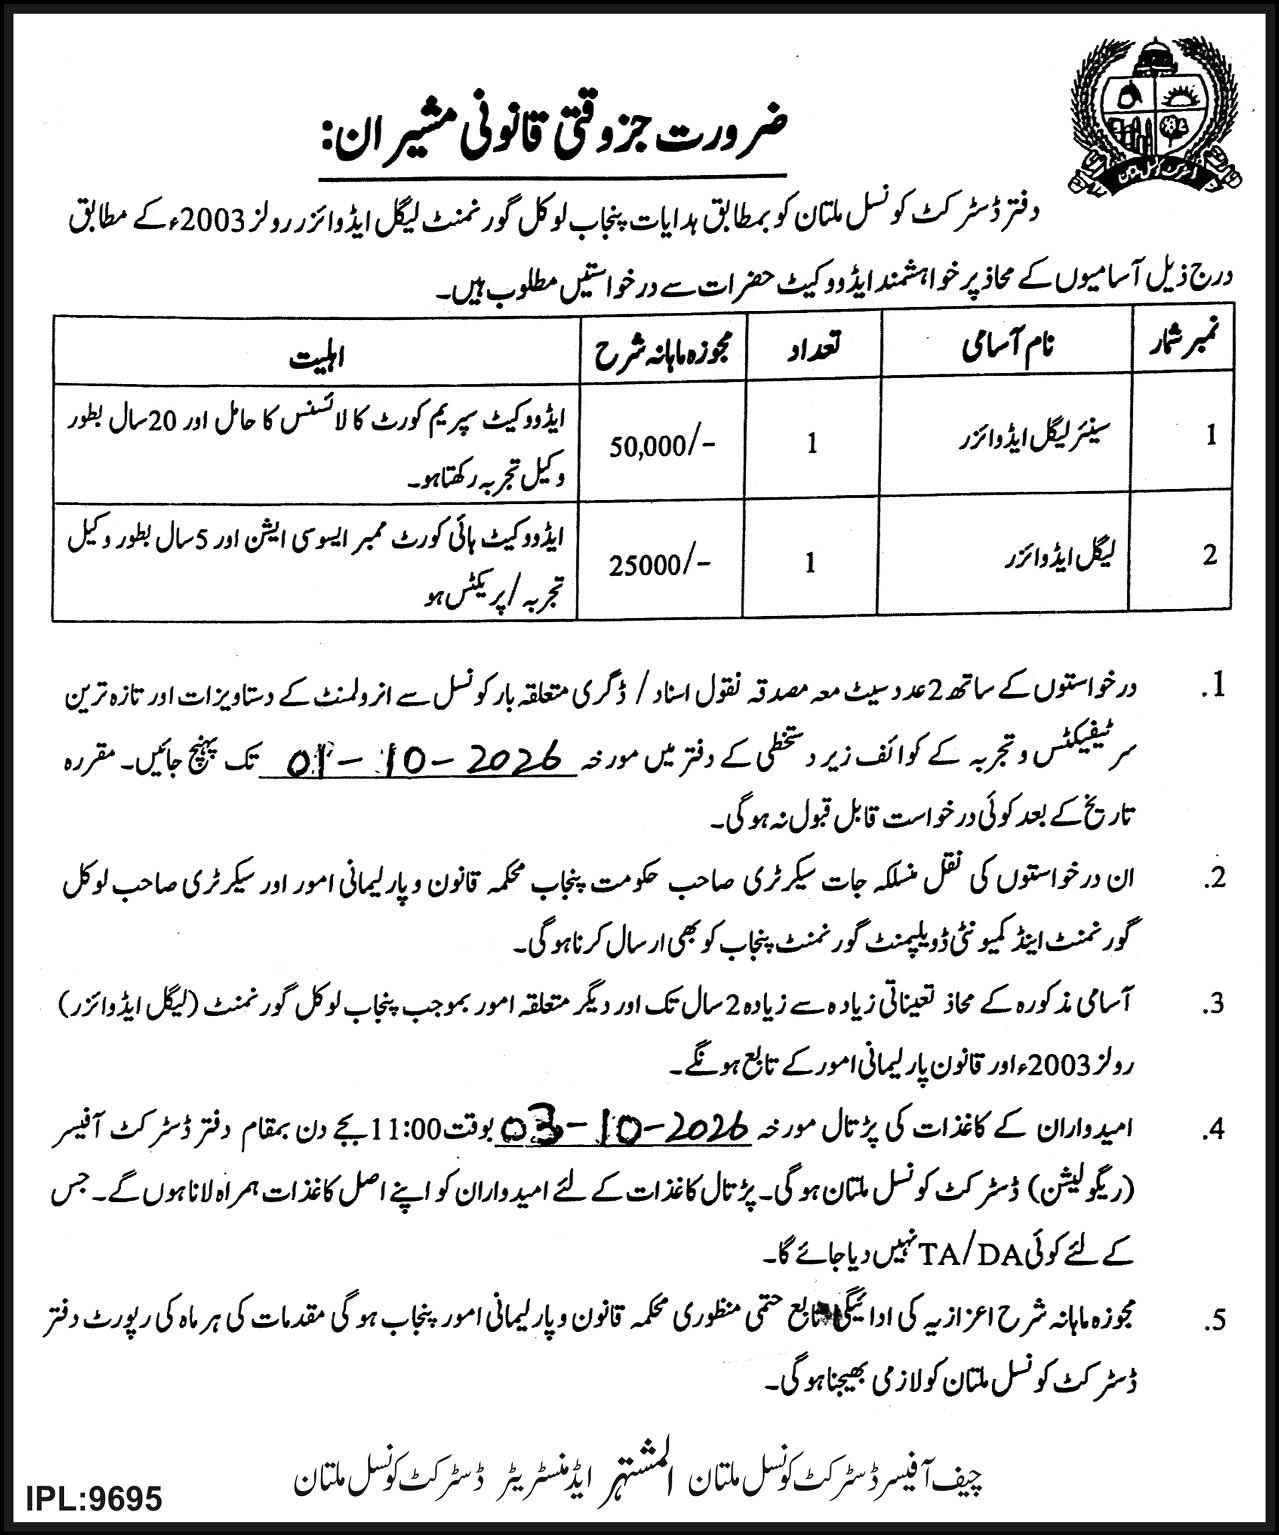 ڈسٹرکٹ کونسل ملتان
ضرورت جزوقتی قانونی مشیران:
دفتر ڈسٹرکٹ کونسل ملتان کو بمطابق ہدایات پنجاب لوکل گورنمنٹ لیگل ایڈوائزر رولز 2003ء کے مطابق
درج ذیل آسامیوں کے محاذ پر خواہشمند ایڈووکیٹ حضرات سے درخواستیں مطلوب ہیں۔
نمبر شمار	نام آسامی	تعداد	مجوزہ ماہانہ شرح	اہلیت
1	سینئر لیگل ایڈوائزر	1	50,000/-	ایڈووکیٹ سپریم کورٹ کا لائسنس کا حامل اور 20 سال بطور
وکیل تجربہ رکھتا ہو۔
2	لیگل ایڈوائزر	1	25000/-	ایڈووکیٹ ہائی کورٹ ممبر ایسوسی ایشن اور 5 سال بطور وکیل
تجربہ / پریکٹس ہو
1. درخواستوں کے ساتھ 2 عدد سیٹ معہ مصدقہ نقول اسناد / ڈگری متعلقہ بار کونسل سے انرولمنٹ کے دستاویزات اور تازہ ترین
سرٹیفیکٹس و تجربہ کے کوائف زیر دستخطی کے دفتر میں مورخہ 01-10-2026 تک پہنچ جائیں۔ مقررہ
تاریخ کے بعد کوئی درخواست قابل قبول نہ ہوگی۔
2. ان درخواستوں کی نقل منسلکہ جات سیکرٹری صاحب حکومت پنجاب محکمہ قانون و پارلیمانی امور اور سیکرٹری صاحب لوکل
گورنمنٹ اینڈ کمیونٹی ڈویلپمنٹ گورنمنٹ پنجاب کو بھی ارسال کرنا ہوگی۔
3. آسامی مذکورہ کے محاذ تعیناتی زیادہ سے زیادہ 2 سال تک اور دیگر متعلقہ امور بموجب پنجاب لوکل گورنمنٹ (لیگل ایڈوائزر)
رولز 2003ء اور قانون پارلیمانی امور کے تابع ہونگے۔
4. امیدواران کے کاغذات کی پڑتال مورخہ 03-10-2026 بوقت 11:00 بجے دن بمقام دفتر ڈسٹرکٹ آفیسر
(ریگولیشن) ڈسٹرکٹ کونسل ملتان ہوگی۔ پڑتال کاغذات کے لئے امیدواران کو اپنے اصل کاغذات ہمراہ لانا ہوں گے۔ جس
کے لئے کوئی TA/DA نہیں دیا جائے گا۔
5. مجوزہ ماہانہ شرح اعزازیہ کی ادائیگی تابع حتمی منظوری محکمہ قانون و پارلیمانی امور پنجاب ہوگی مقدمات کی ہر ماہ کی رپورٹ دفتر
ڈسٹرکٹ کونسل ملتان کو لازمی بھیجنا ہوگی۔
چیف آفیسر ڈسٹرکٹ کونسل ملتان المشتہر ایڈمنسٹریٹر ڈسٹرکٹ کونسل ملتان
IPL:9695